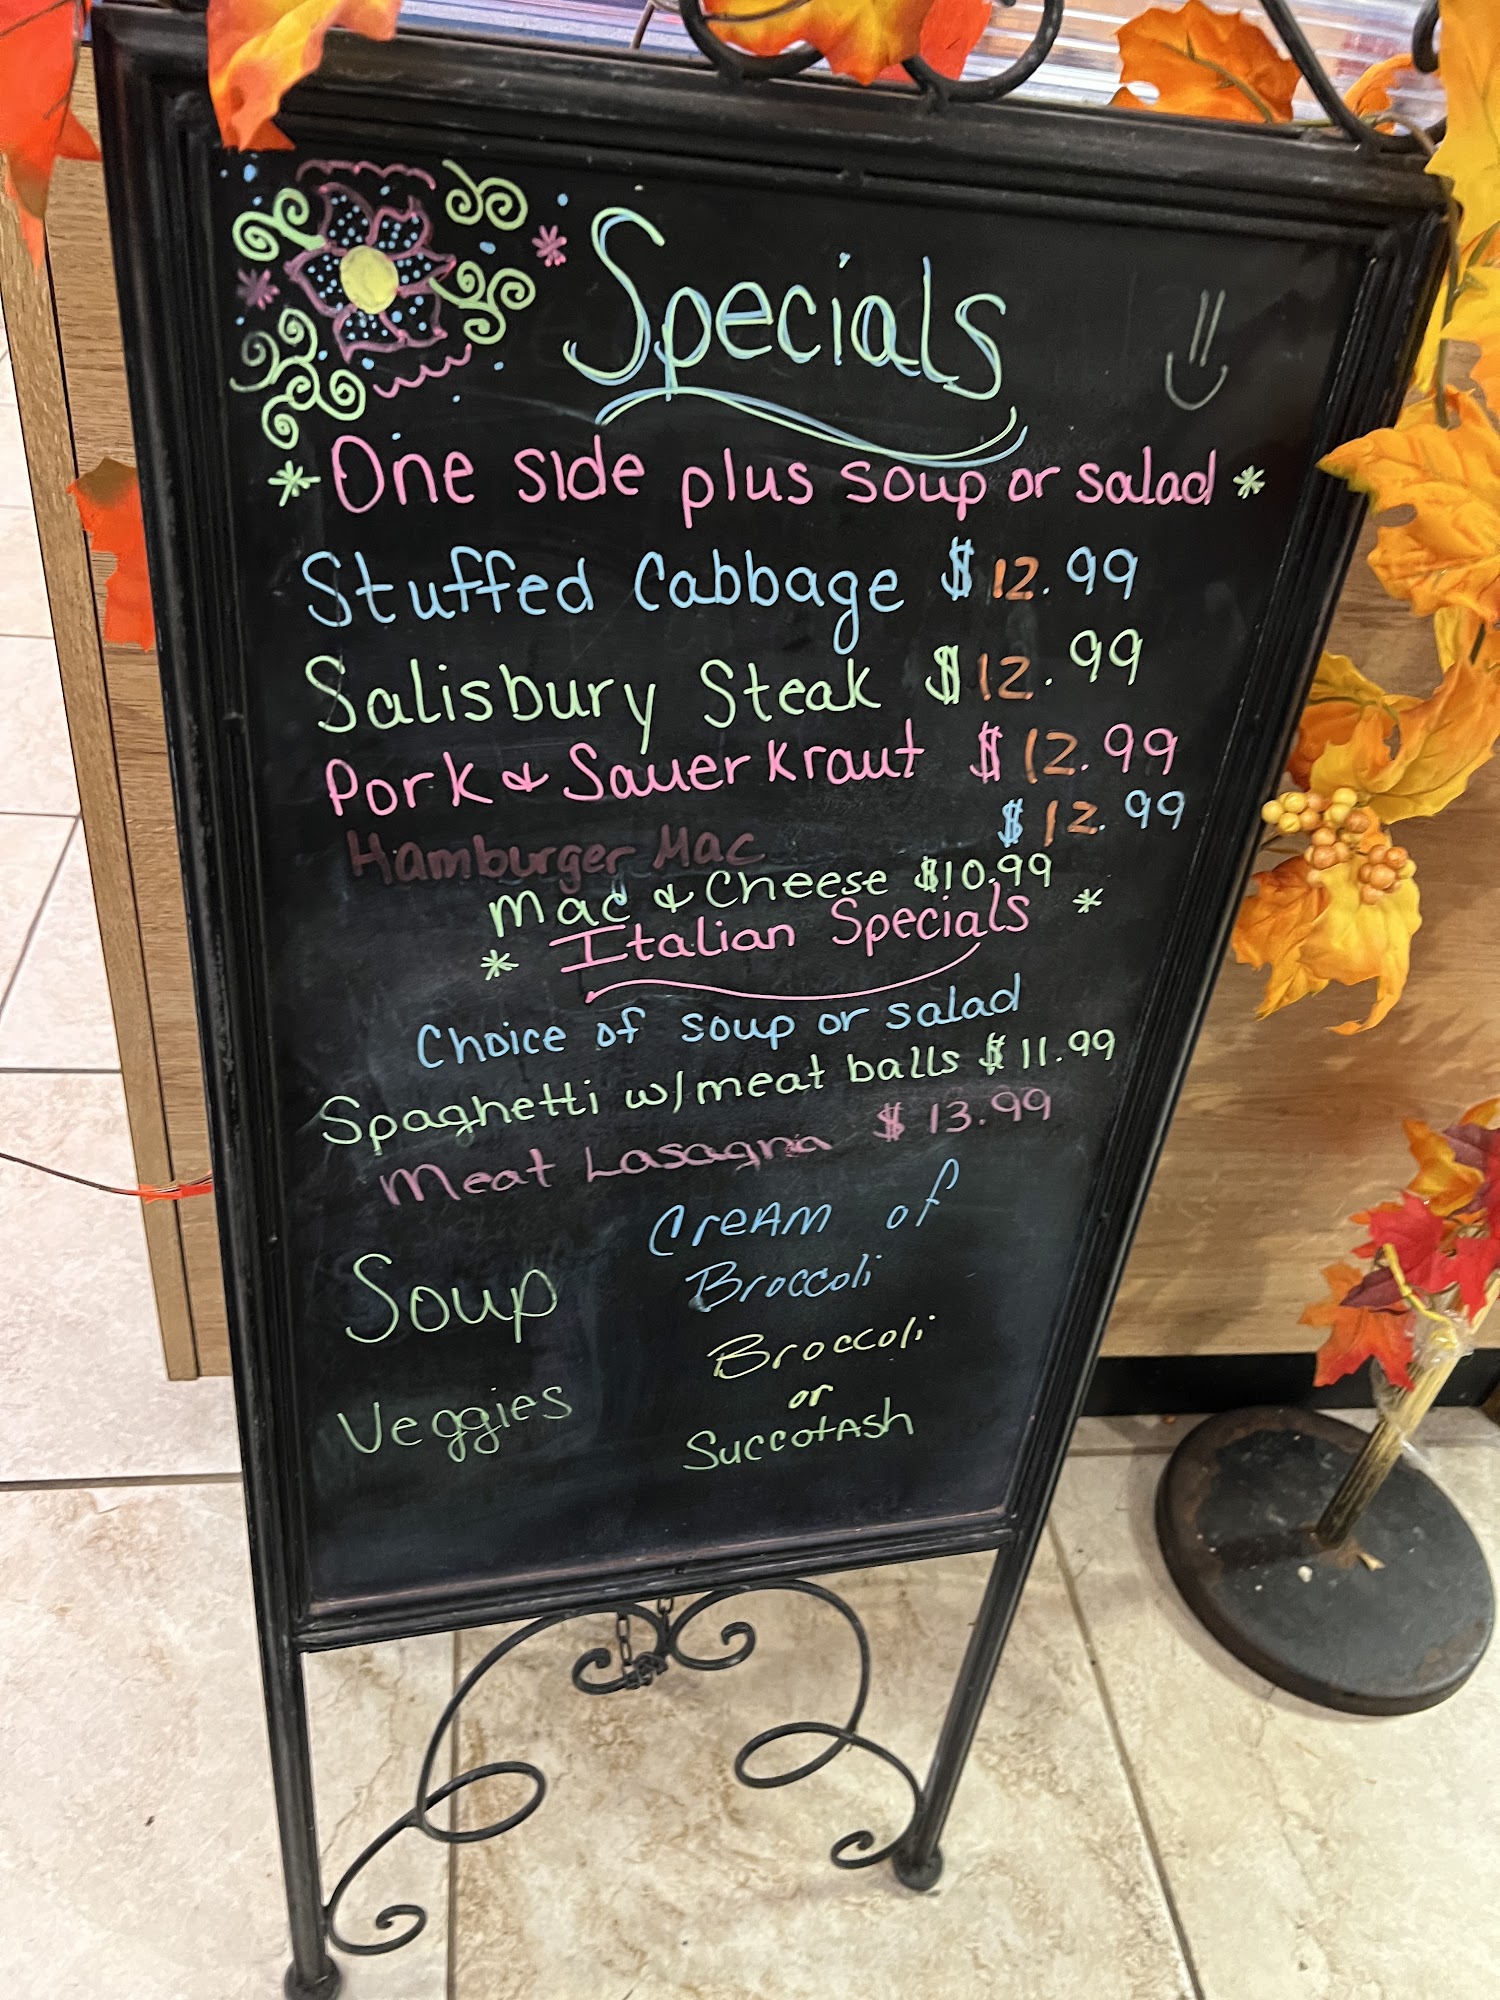 Specials
* One side plus soup or salad *
Stuffed Cabbage $12.99
Salisbury Steak $12.99
Pork & Sauerkraut $12.99
Hamburger Mac $12.99
Mac & Cheese $10.99
* Italian Specials *
Choice of soup or salad
Spaghetti w/meat balls $11.99
Meat Lasagna $13.99
Soup Cream of
Broccoli
Veggies Broccoli
or
Succotash